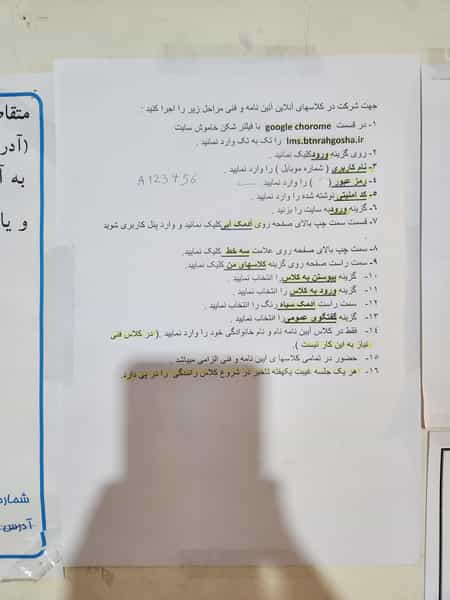 جهت شرکت در کلاسهای آنلاین آئین نامه و فنی مراحل زیر را اجرا کنید :
۱- در قسمت google chorome با فیلتر شکن خاموش سایت
lms.btnrahgosha.ir را تک به تک وارد نمائید .
۲- روی گزینه ورود کلیک نمائید .
۳- نام کاربری ( شماره موبایل ) را وارد نمایید .
۴- رمز عبور ( ) را وارد نمایید A123456
۵- کد امنیتی نوشته شده را وارد نمایید .
۶- گزینه ورود به سایت را بزنید .
۷- قسمت سمت چپ بالای صفحه روی آدمک آبی کلیک نمائید و وارد پنل کاربری شوید
.
۸- سمت چپ بالای صفحه روی علامت سه خط کلیک نمایید.
۹- سمت راست صفحه روی گزینه کلاسهای من کلیک نمایید.
۱۰- گزینه پیوستن به کلاس را انتخاب نمایید.
۱۱- گزینه ورود به کلاس را انتخاب نمایید
۱۲- سمت راست آدمک سیاه رنگ را انتخاب نمایید .
۱۳- گزینه گفتگوی عمومی را انتخاب نمایید .
۱۴- فقط در کلاس آیین نامه نام و نام خانوادگی خود را وارد نمایید .( در کلاس فنی
نیاز به این کار نیست ).
۱۵- حضور در تمامی کلاسها ی آیین نامه و فنی الزامی میباشد
۱۶- هر یک جلسه غیبت یکهفته تاخیر در شروع کلاس رانندگی را در پی دارد.
متقاض
(آدر
به آ
و یا
شماره
آدرس